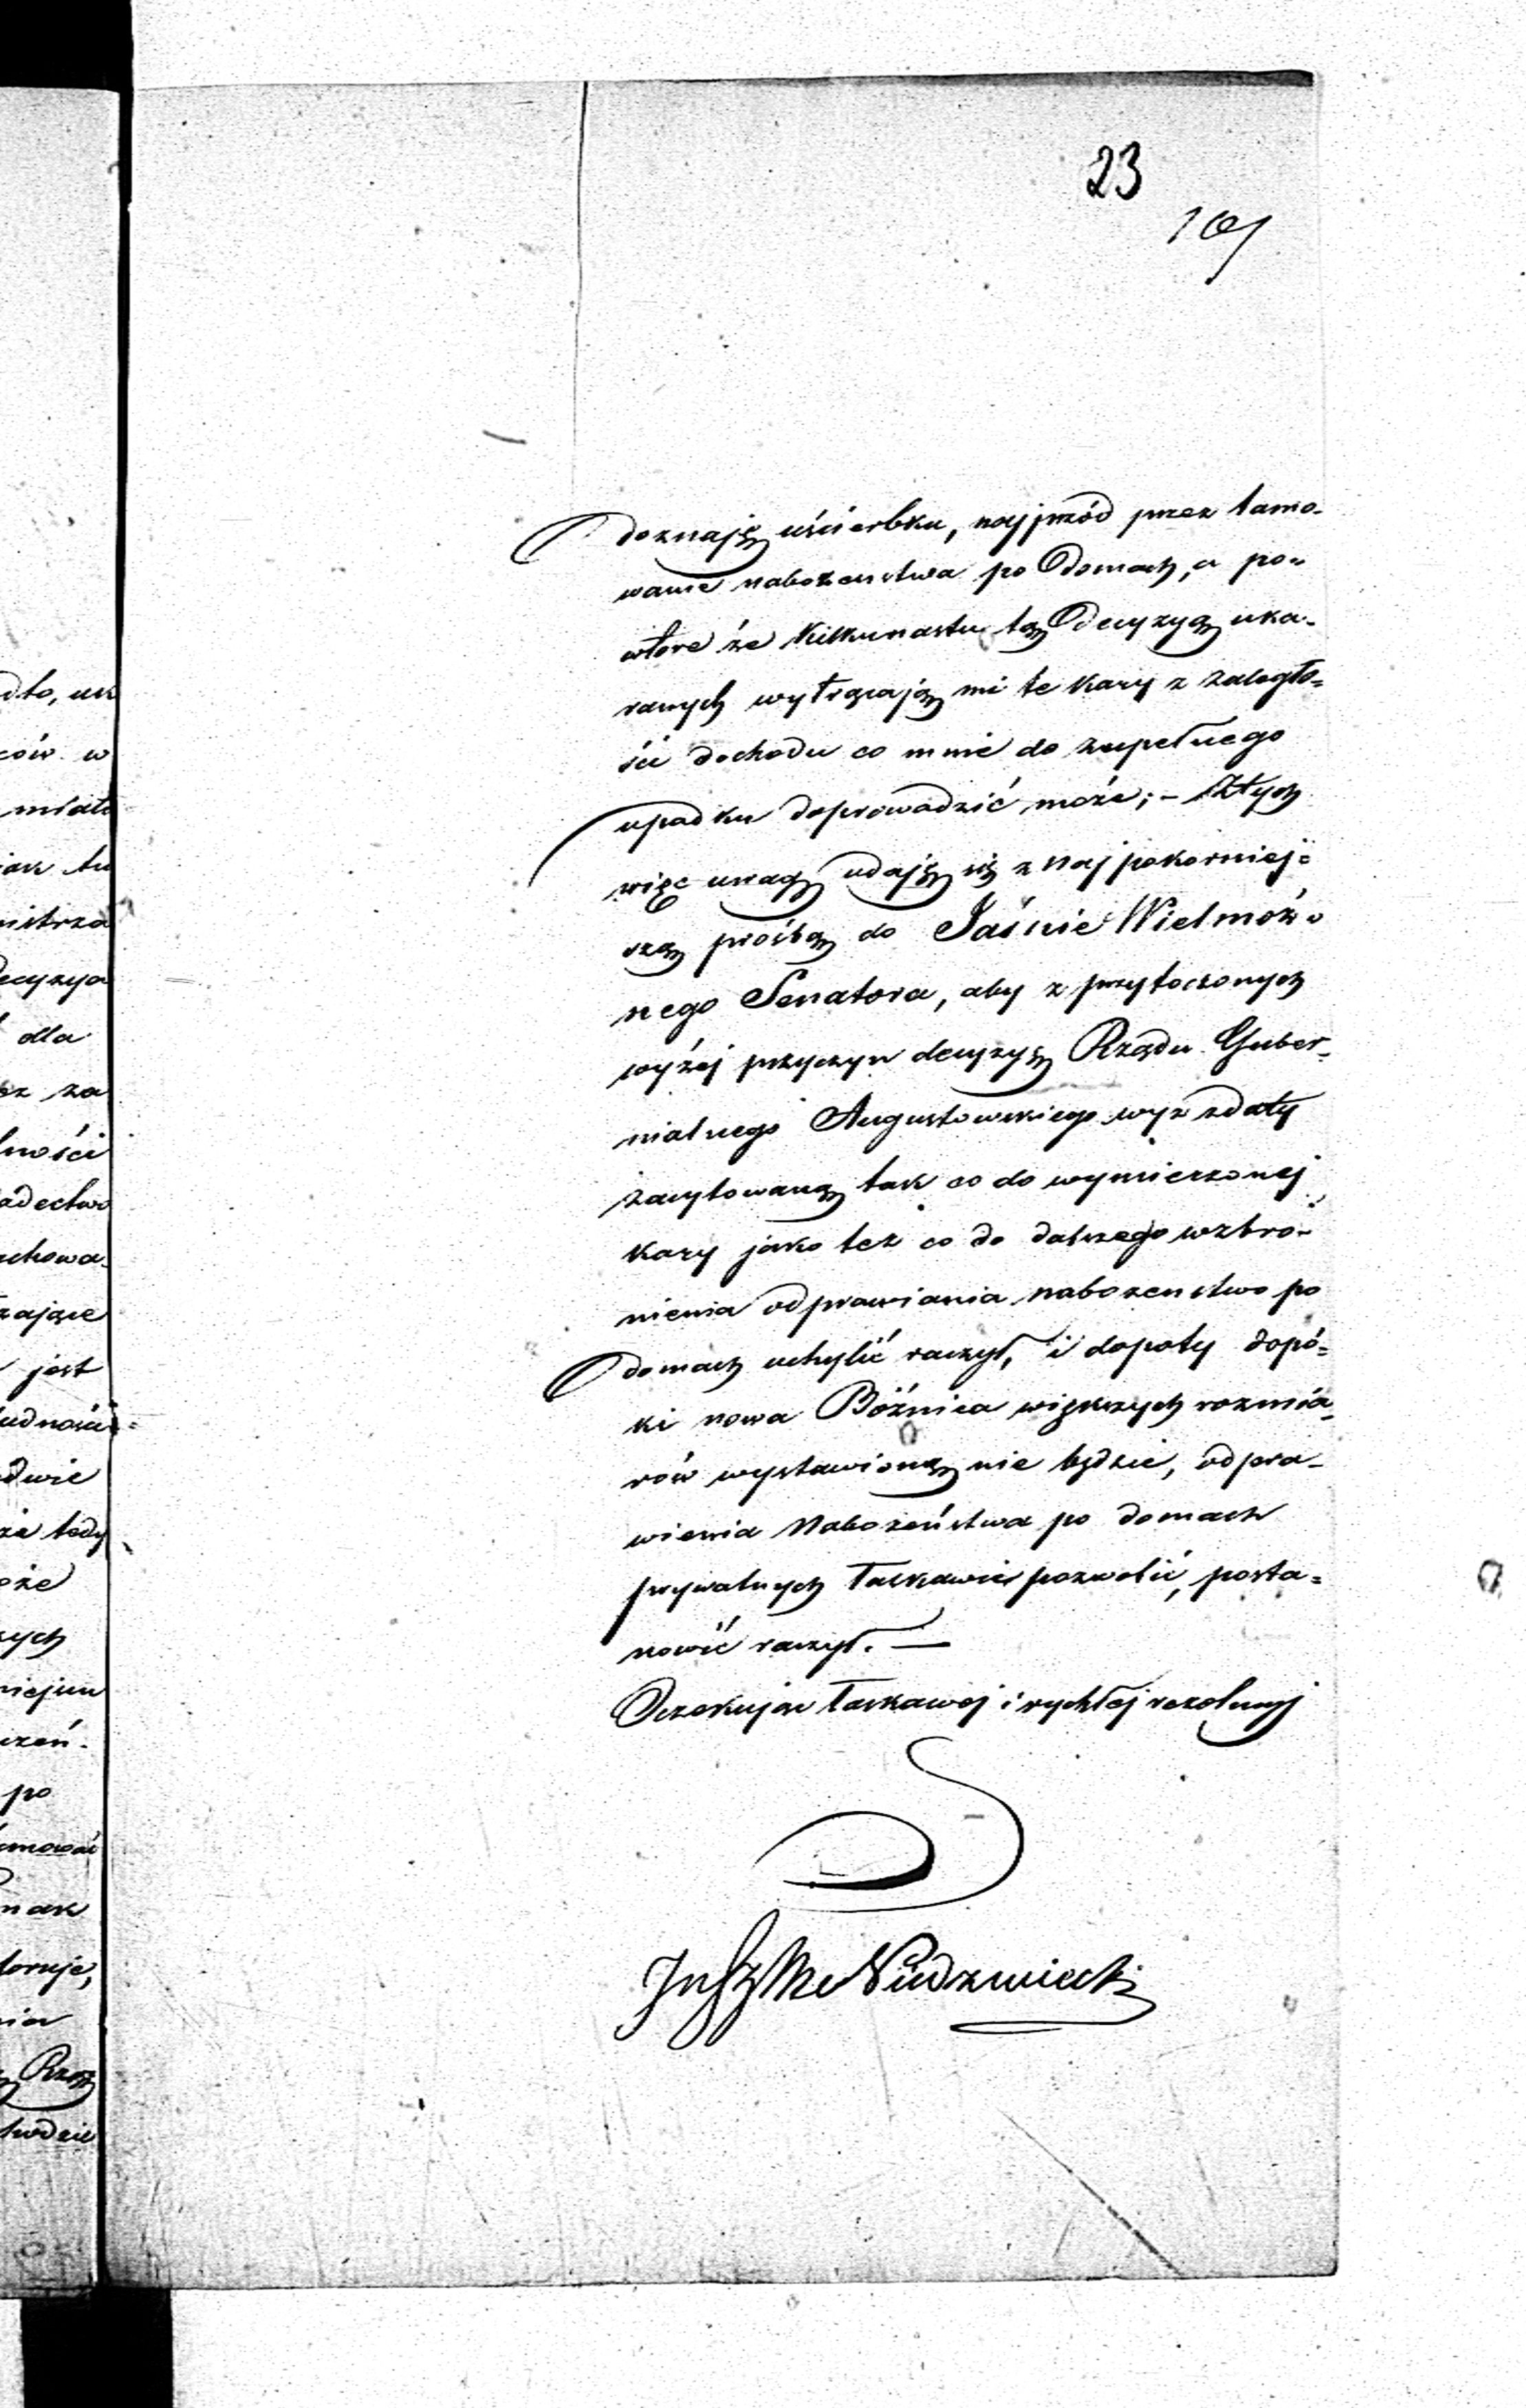 23
109
doznaję uścierbku, najprzód przez tamo-
wanie nabożeństwa po domach, a po-
wtóre że kilkunastu tą decyzyą uka-
ranych wytrącają mi te kary z zaległo-
ści dochodu co mnie do zupełnego
upadku doprowadzić może; – Z tych
więc uwag udaję się z najpokorniej-
szą prośbą do Jaśnie Wielmoż-
nego Senatora, aby z przytoczonych
wyżej przyczyn decyzyę Rządu Guber-
nialnego Augustowskiego wyż z daty
zacytowaną tak co do wymierzonej
kary jako też co do dalszego wzbro-
nienia odprawiania nabożeństwa po
domach uchylić raczył, i dopoty dopó-
ki nowa Bóżnica większych rozmia-
rów wystawioną nie będzie, odpra-
wienia Nabożeństwa po domach
prywatnych łaskawie pozwolić, posta-
nowić raczył. —
Oczekując łaskawej i rychłej rezolucyj
Niedzwiecki
dto, usz
ców w
miało
istrza
decyzya
dla
za
lności
adectwo
achowa-
jest
dwie
że tedy
oże
zych
po
Rzą